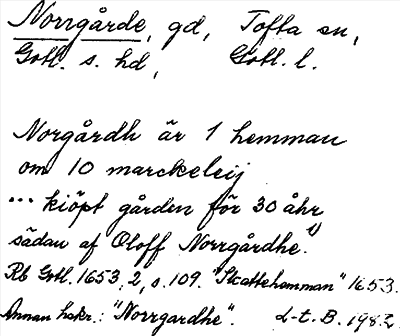 Norrgårde, gd, Tofta sn,
Gotl. s. hd, Gotl. l.
Norgårdh är 1 hemman
om 10 marckeleij
... kiöpt gården för 30 åhr
sädan af Oloff Norrgårdhe. 1)
Rb Gotl. 1653, 2, s. 109. "Skattehemman" 1653.
Annan hskr.: "Norrgardhe". L-t. B. 1982.